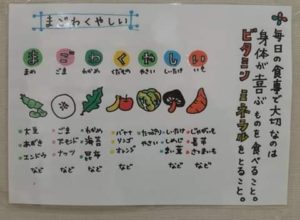 まごわくやしい
ま ご わ く や し い
まめ ごま わかめ くだもの やさい しいたけ いも
・大豆
・あずき
・エンドウ
など
・ごま
・アーモンド
・ナッツ
など
・わかめ
・海苔
・昆布
など
・バナナ
・リンゴ
・オレンジ
など
・たっぷり
やさい
など
・しいたけ
・しめじ
・まい茸
など
・じゃがいも
・長芋
・さつまいも
など
毎日の食事で大切なのは
身体が喜ぶものを食べること。
ビタミン ミネラルをとること。